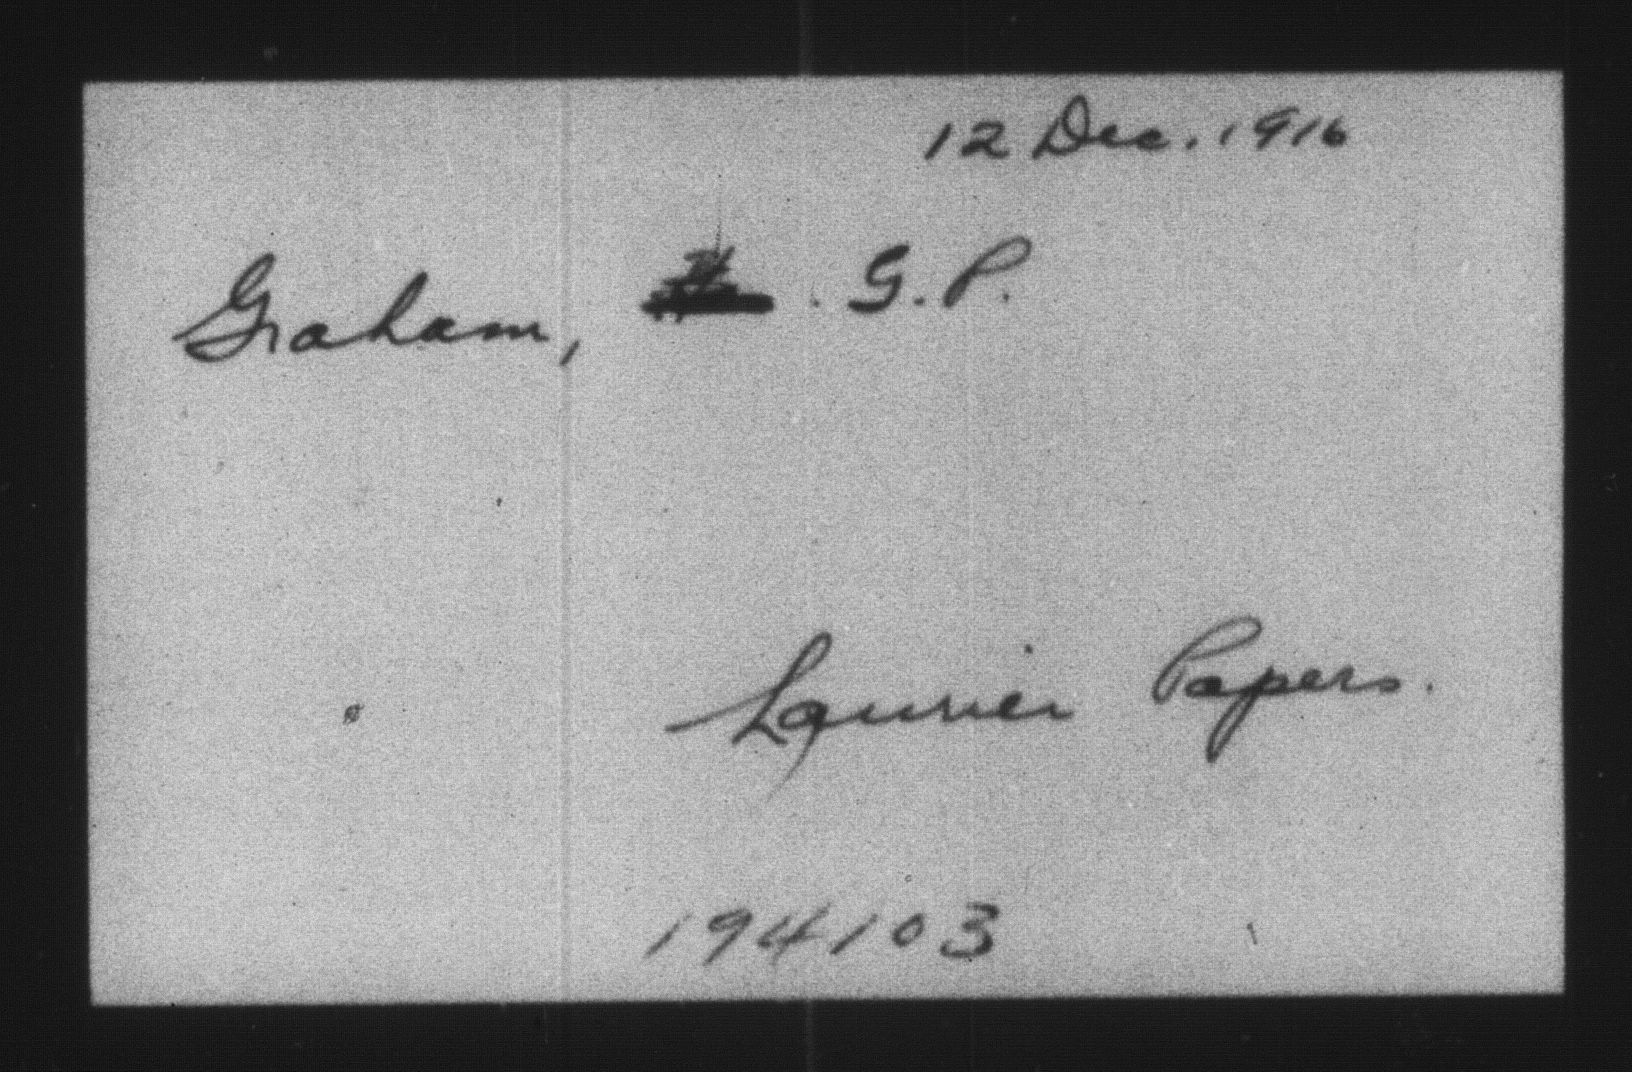 12 Dec. 1916
Graham, G.P.
Laurier Papers.
194103